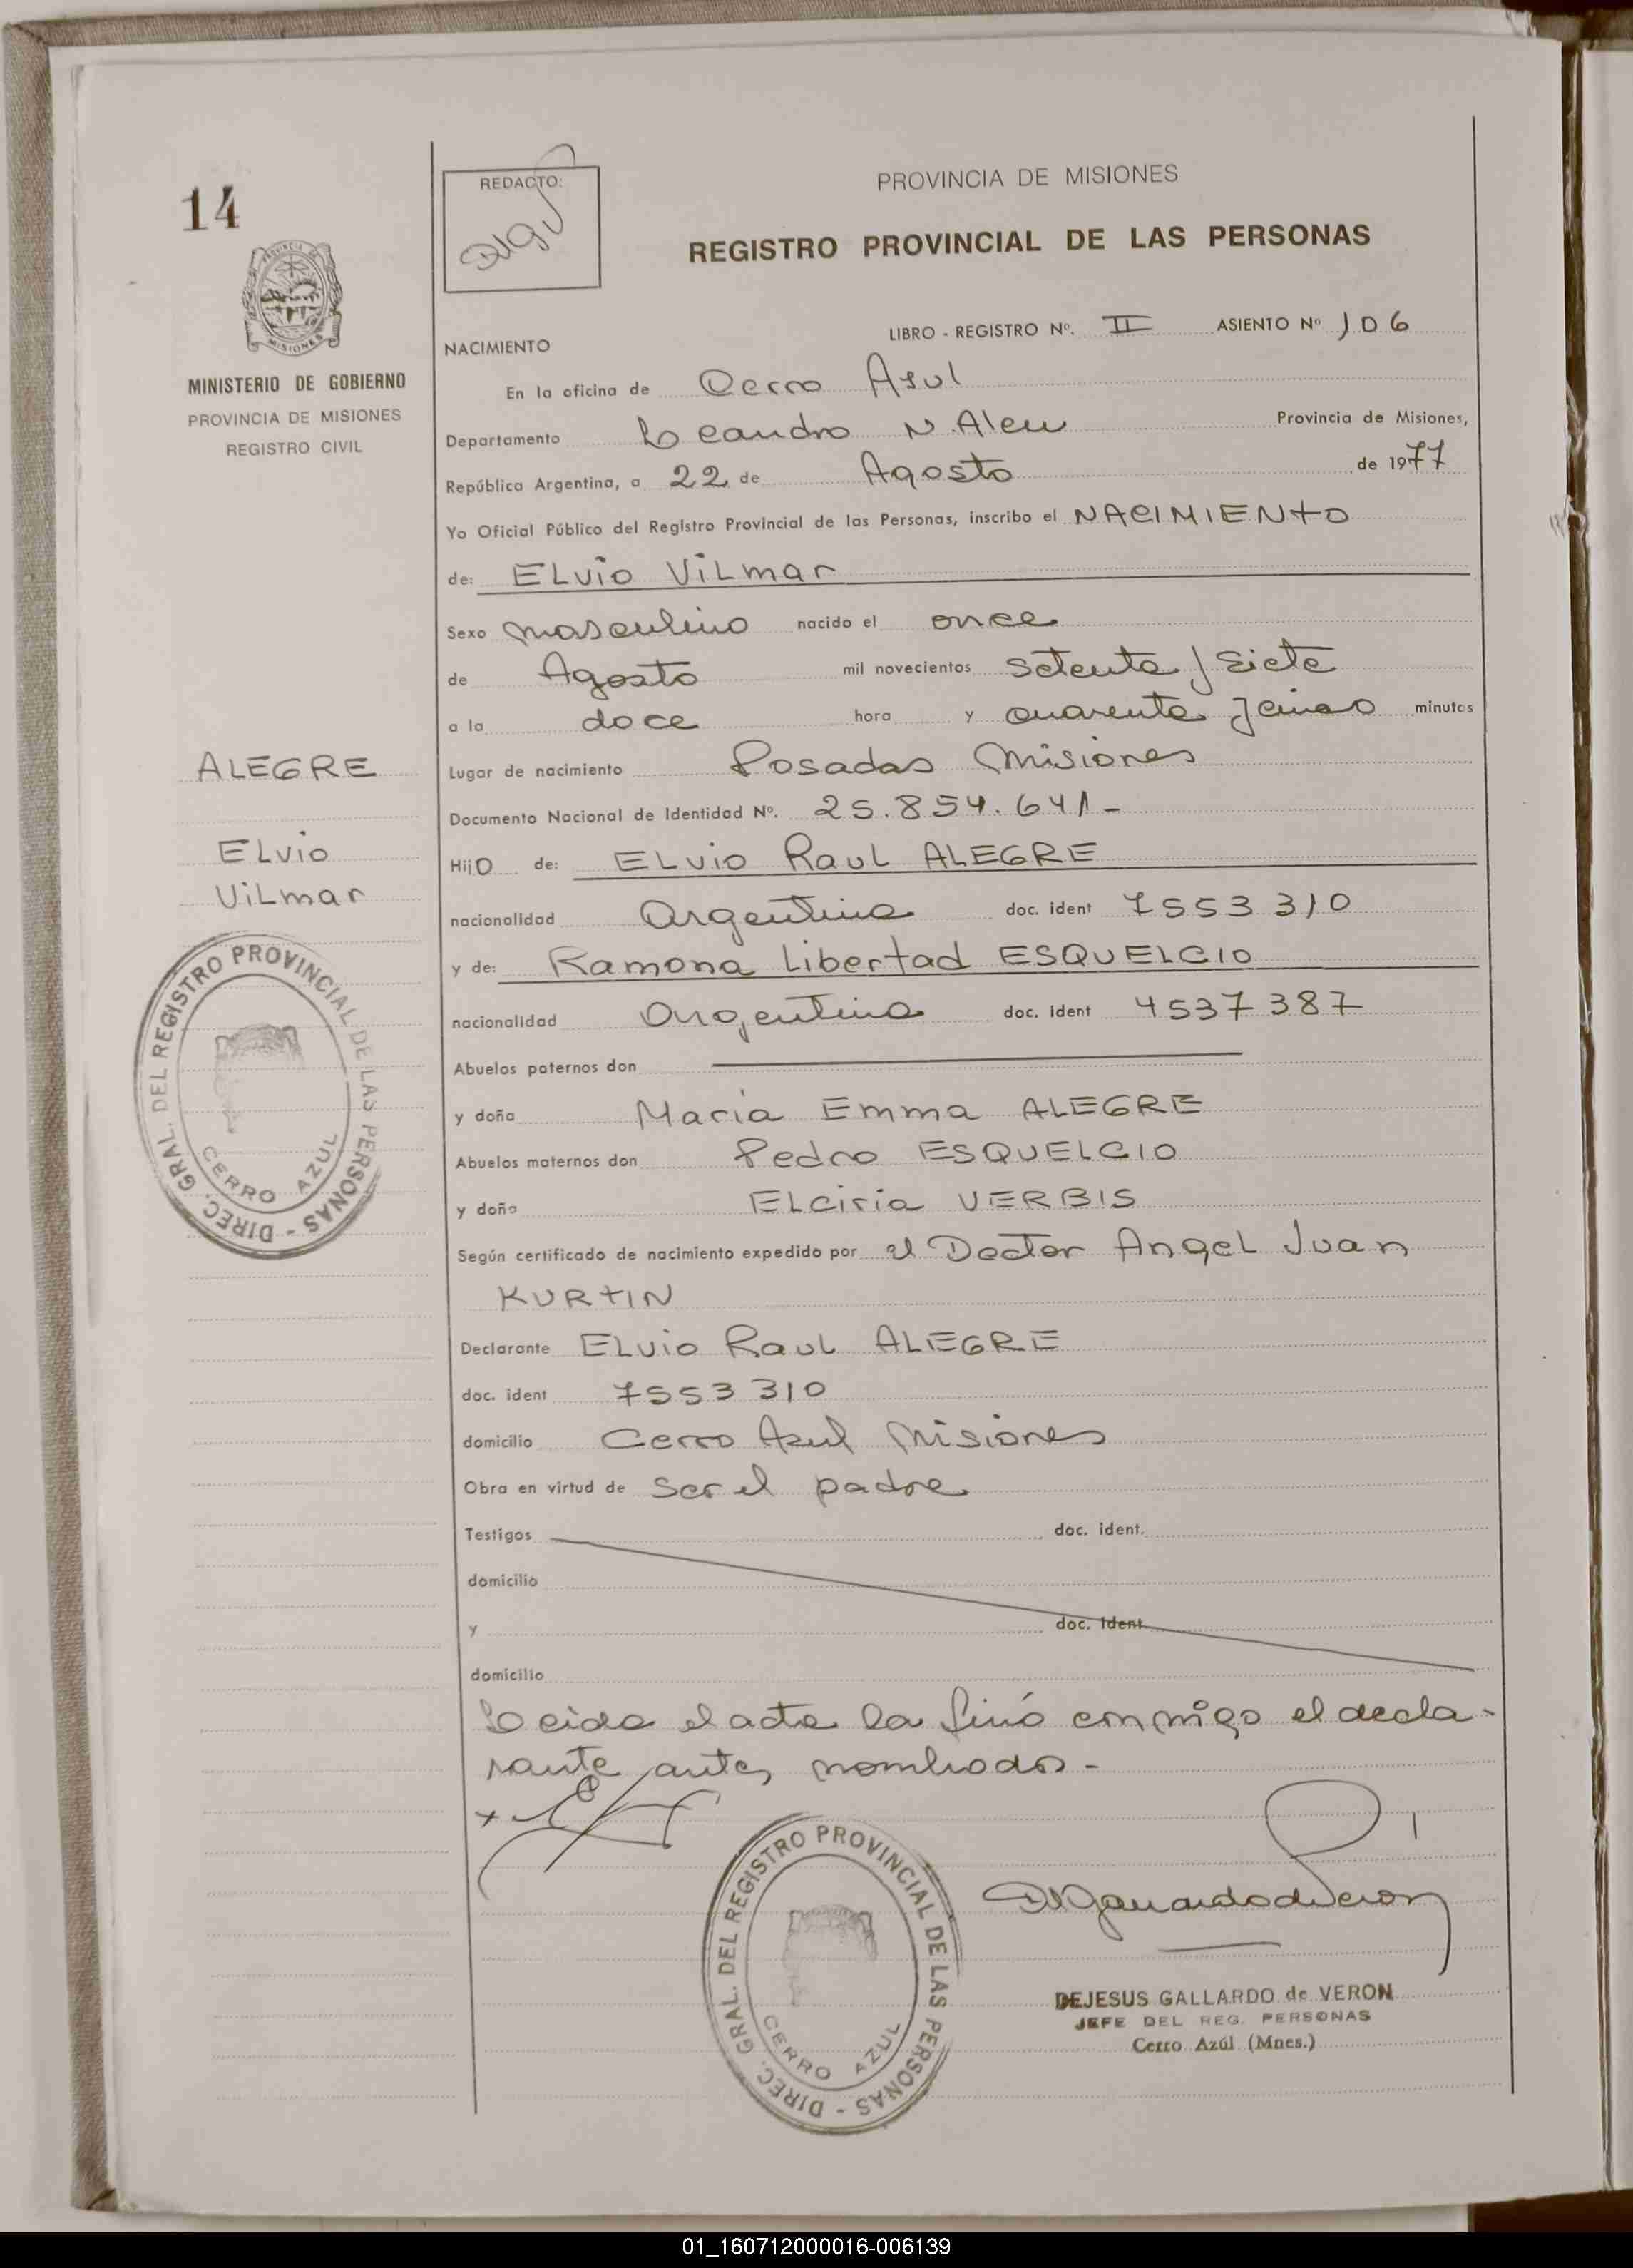 14
MINISTERIO DE GOBIERNO
PROVINCIA DE MISIONES
REGISTRO CIVIL
REDACTO:
PROVINCIA DE MISIONES
REGISTRO PROVINCIAL DE LAS PERSONAS
LIBRO - REGISTRO Nº. II ASIENTO Nº 106
NACIMIENTO
En la oficina de Cerro Asul
Departamento Leandro N. Alem Provincia de Misiones,
República Argentina, a 22 de Agosto de 1977
Yo Oficial Público del Registro Provincial de las Personas, inscribo el NACIMIENTO
de: ELVIO VILmar
Sexo masculino nacido el once
de Agosto mil novecientos setenta y siete
a la doce hora y cuarenta y cinco minutos
Lugar de nacimiento Posadas Misiones
Documento Nacional de Identidad Nº. 25.854.641-
Hijo de: ELVIO RauL ALEGRE
nacionalidad Argentina doc. ident 7553310
y de: Ramona Libertad ESQUELCIO
nacionalidad Argentina doc. ident 4537387
Abuelos paternos don
y doña Maria Emma ALEGRE
Abuelos maternos don Pedro ESQUELCIO
y doña ELciria VERBIS
Según certificado de nacimiento expedido por el Doctor AngeL Juan
KURTIN
Declarante ELVIO RauL ALEGRE
doc. ident 7553310
domicilio Cerro Azul Misiones
Obra en virtud de ser el padre
Testigos doc. ident.
domicilio
y doc. ident
domicilio
Leida el acta la firmó conmigo el decla-
rante antes nombrados-
ALEGRE
ELVIO
VILmar
DIREC. GRAL. DEL REGISTRO PROVINCIAL DE LAS PERSONAS -
CERRO AZUL
DIREC. GRAL. DEL REGISTRO PROVINCIAL DE LAS PERSONAS -
CERRO AZUL
DEJESUS GALLARDO de VERON
JEFE DEL REG. PERSONAS
Cerro Azúl (Mnes.)
01_160712000016-006139